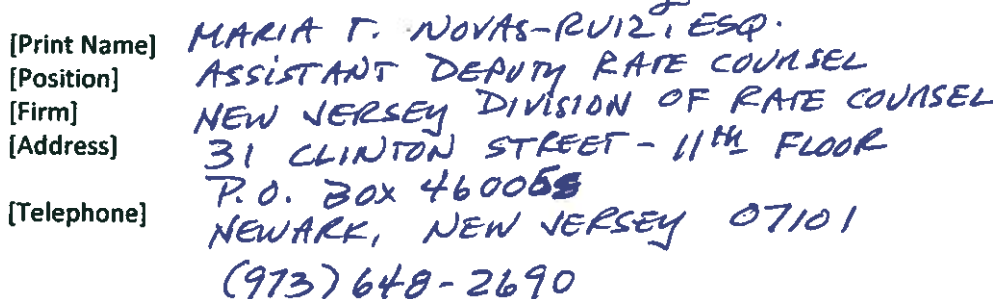 [Print Name] MARIA T. NOVAS-RUIZ, ESQ.
[Position] ASSISTANT DEPUTY RATE COUNSEL
[Firm] NEW JERSEY DIVISION OF RATE COUNSEL
[Address] 31 CLINTON STREET - 11TH FLOOR
P.O. BOX
[Telephone] NEWARK, NEW JERSEY 07101
(973) 648-2690